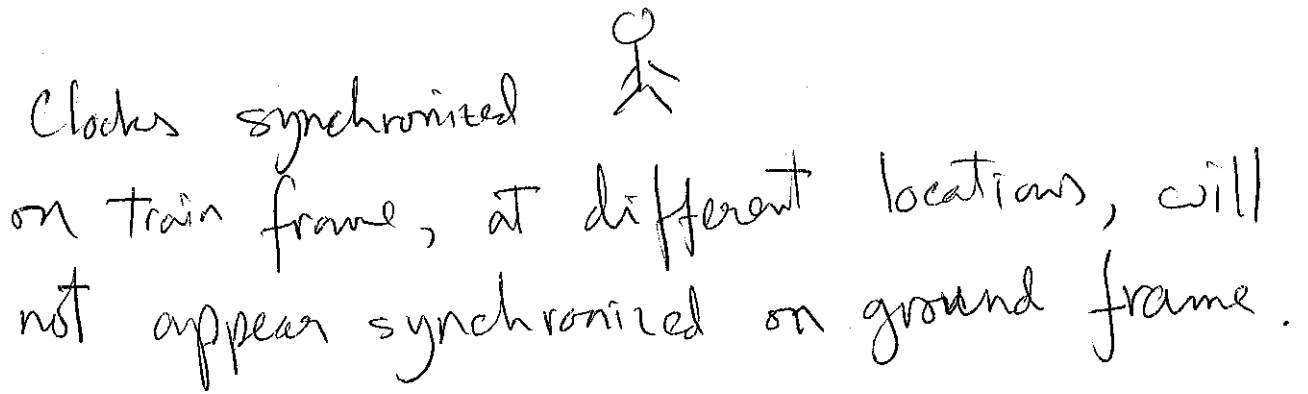 Clocks synchronized
on train frame, at different locations, will
not appear synchronized on ground frame.